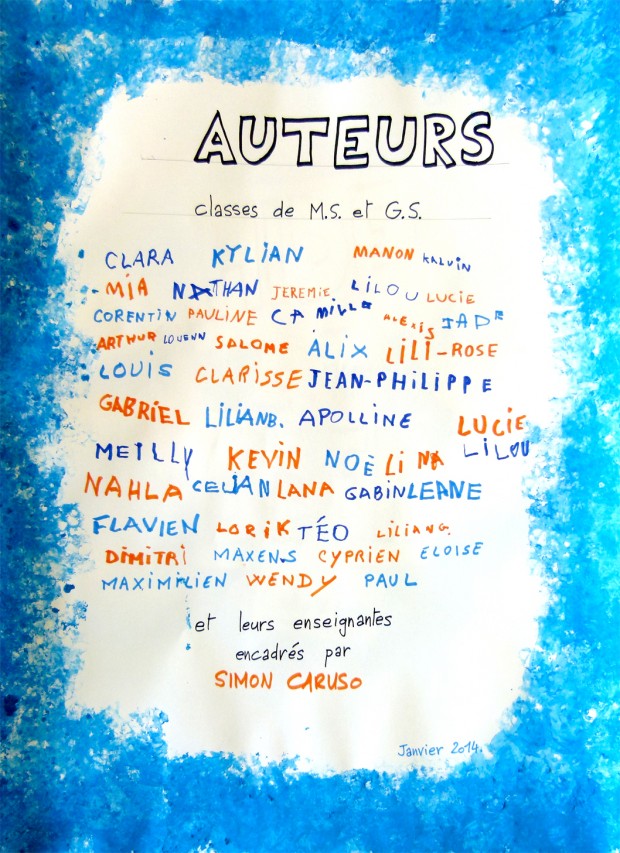 AUTEURS
classes de M.S. et G.S.
CLARA KYLIAN MANON KALVIN
MIA NATHAN JEREMIE LILOU LUCIE
CORENTIN PAULINE CAMILLE ALEXIS JADE
ARTHUR LOUENN SALOME ALIX LILI-ROSE
LOUIS CLARISSE JEAN-PHILIPPE
GABRIEL LILIANB. APOLLINE LUCIE
MEILLY KEVIN NOÈ LINA LILOU
NAHLA CELIAN LANA GABIN LEANE
FLAVIEN LORIK TÉO LILIANG.
DIMITRI MAXENS CYPRIEN ELOISE
MAXIMILIEN WENDY PAUL
et leurs enseignantes
encadrés par
SIMON CARUSO
Janvier 2014.